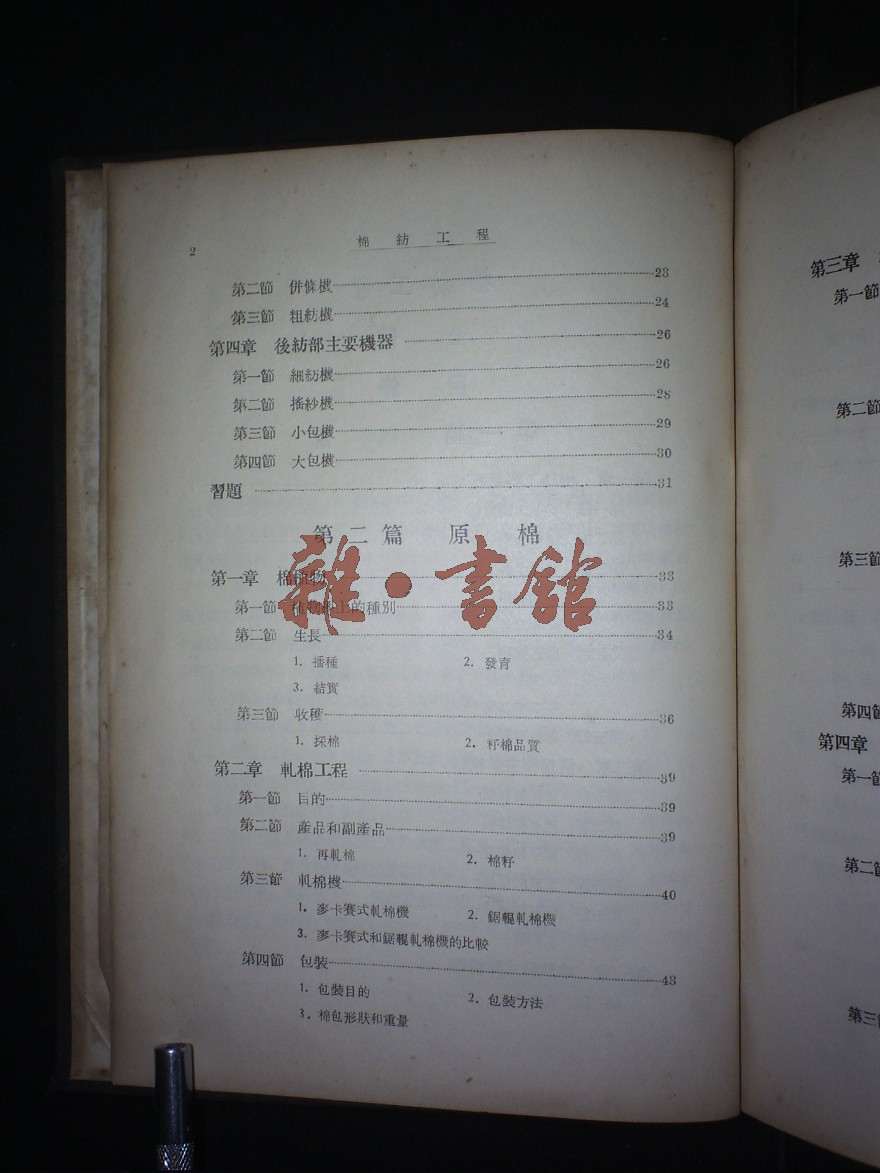 2
棉紡工程
第二節 併條機 23
第三節 粗紡機 24
第四章 後紡部主要機器 26
第一節 細紡機 26
第二節 搖紗機 28
第三節 小包機 29
第四節 大包機 30
習題 31
第二篇 原棉
第一章 棉植物 33
第一節 植物學上的種別 33
第二節 生長 34
1. 播種 2. 發育
3. 結實
第三節 收穫 36
1. 採棉 2. 籽棉品質
第二章 軋棉工程 39
第一節 目的 39
第二節 產品和副產品 39
1. 再軋棉 2. 棉籽
第三節 軋棉機 40
1. 麥卡賽式軋棉機 2. 鋸輥軋棉機
3. 麥卡賽式和鋸輥軋棉機的比較
第四節 包裝 43
1. 包裝目的 2. 包裝方法
3. 棉包形狀和重量
雜·書館
第三章
第一節
第二節
第三節
第四節
第四章
第一節
第二節
第三節